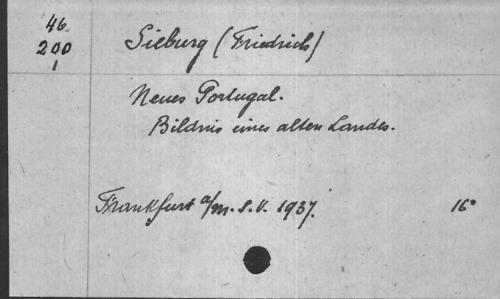 46
200
1
Sieburg (Friedrich)
Neues Portugal.
Bildnis eines alten Landes.
Frankfurt a/m. S.V. 1937.
16°